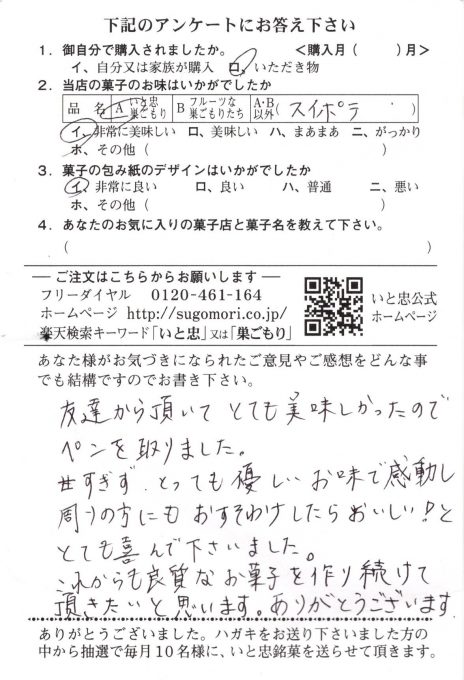 下記のアンケートにお答え下さい
1. 御自分で購入されましたか。 <購入月（　　）月>
イ、自分又は家族が購入　ロ、いただき物
2. 当店の菓子のお味はいかがでしたか
品 名 A いと忠巣ごもり B フルーツな巣ごもりたち A・B以外（スイポラ　）
イ、非常に美味しい　ロ、美味しい　ハ、まあまあ　ニ、がっかり
ホ、その他（　　　）
3. 菓子の包み紙のデザインはいかがでしたか
イ、非常に良い　ロ、良い　ハ、普通　ニ、悪い
ホ、その他（　　　）
4. あなたのお気に入りの菓子店と菓子名を教えて下さい。
（　　　）
― ご注文はこちらからお願いします ―
フリーダイヤル　0120-461-164
ホームページ http://sugomori.co.jp/
楽天検索キーワード「いと忠」又は「巣ごもり」
いと忠公式
ホームページ
あなた様がお気づきになられたご意見やご感想をどんな事
でも結構ですのでお書き下さい。
友達から頂いて とても美味しかったので
ペンを取りました。
甘すぎず、とっても優しいお味で感動し
周りの方にもおすそわけしたらおいしい！と
とても喜んで下さいました。
これからも良質なお菓子を作り続けて
頂きたいと思います。ありがとうございます
ありがとうございました。ハガキをお送り下さいました方の
中から抽選で毎月10名様に、いと忠銘菓を送らせて頂きます。